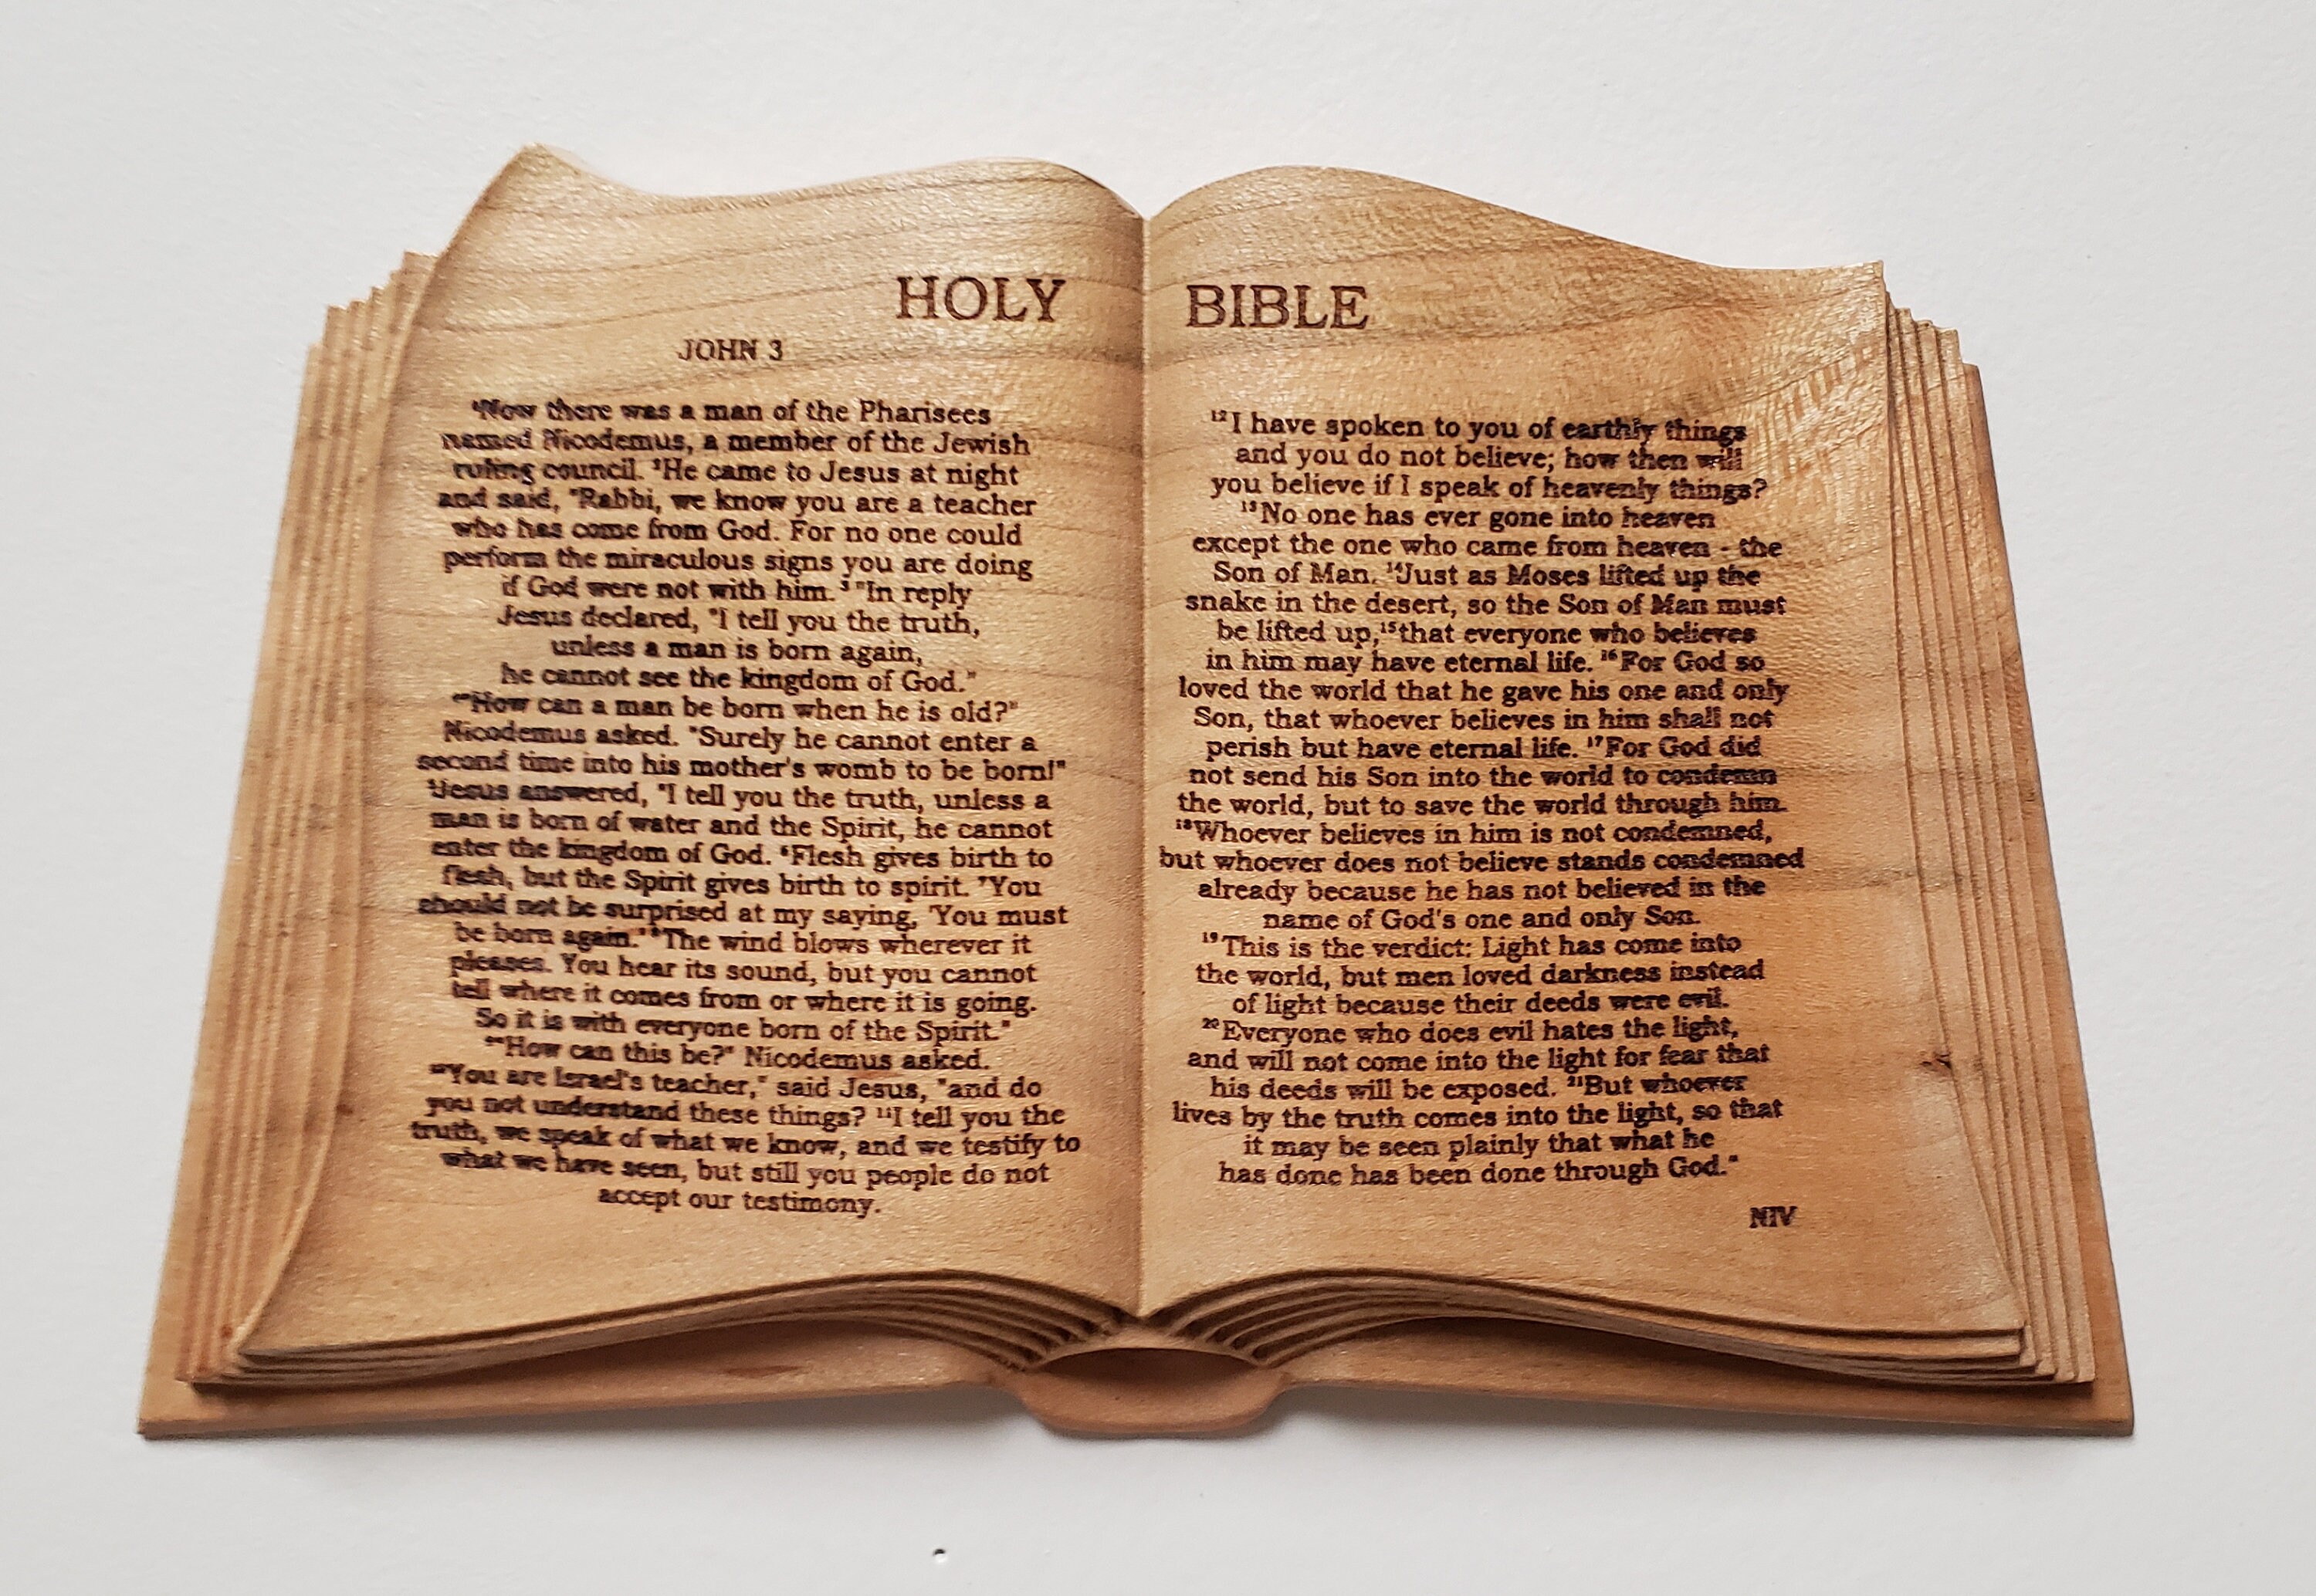 HOLY BIBLE
JOHN 3
¹Now there was a man of the Pharisees
named Nicodemus, a member of the Jewish
ruling council. ²He came to Jesus at night
and said, "Rabbi, we know you are a teacher
who has come from God. For no one could
perform the miraculous signs you are doing
if God were not with him. ³"In reply
Jesus declared, "I tell you the truth,
unless a man is born again,
he cannot see the kingdom of God."
⁴"How can a man be born when he is old?"
Nicodemus asked. "Surely he cannot enter a
second time into his mother's womb to be born!"
⁵Jesus answered, "I tell you the truth, unless a
man is born of water and the Spirit, he cannot
enter the kingdom of God. ⁶Flesh gives birth to
flesh, but the Spirit gives birth to spirit. ⁷You
should not be surprised at my saying, 'You must
be born again.' ⁸The wind blows wherever it
pleases. You hear its sound, but you cannot
tell where it comes from or where it is going.
So it is with everyone born of the Spirit."
⁹"How can this be?" Nicodemus asked.
¹⁰"You are Israel's teacher," said Jesus, "and do
you not understand these things? ¹¹I tell you the
truth, we speak of what we know, and we testify to
what we have seen, but still you people do not
accept our testimony.
¹²I have spoken to you of earthly things
and you do not believe; how then will
you believe if I speak of heavenly things?
¹³No one has ever gone into heaven
except the one who came from heaven - the
Son of Man. ¹⁴Just as Moses lifted up the
snake in the desert, so the Son of Man must
be lifted up,¹⁵that everyone who believes
in him may have eternal life. ¹⁶For God so
loved the world that he gave his one and only
Son, that whoever believes in him shall not
perish but have eternal life. ¹⁷For God did
not send his Son into the world to condemn
the world, but to save the world through him.
¹⁸Whoever believes in him is not condemned,
but whoever does not believe stands condemned
already because he has not believed in the
name of God's one and only Son.
¹⁹This is the verdict: Light has come into
the world, but men loved darkness instead
of light because their deeds were evil.
²⁰Everyone who does evil hates the light,
and will not come into the light for fear that
his deeds will be exposed. ²¹But whoever
lives by the truth comes into the light, so that
it may be seen plainly that what he
has done has been done through God."
NIV